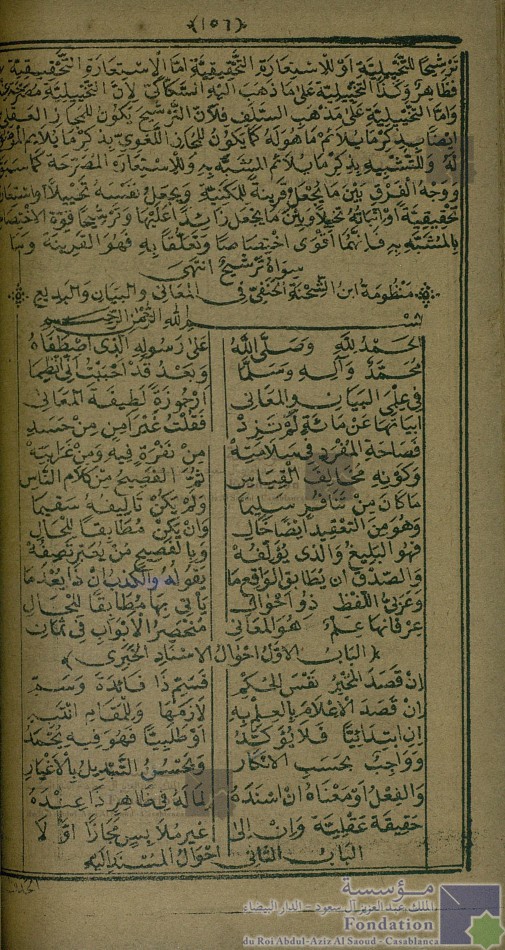 ﴿١٥٦﴾
ترشيحا للتخييلية او للاستعارة التحقيقية اما الاستعارة التحقيقية
فظاهر وكذا التخييلية على ما ذهب اليه السكاكى لان التخييلية
واما التخييلية على مذهب السلف فلان الترشيح يكون للمجاز العقلى
ايضا بذكر ما يلائم ما هو له كما يكون للمجاز اللغوى بذكر ما يلائم
له وللتشبيه بذكر ما يلائم المشبه به وللاستعارة المصرحة كما سبق
ووجه الفرق بين ما يجعل قرينة للمكنية ويجعل نفسه تخييلا او استعارة
تحقيقية او اثباته تخييلا وبين ما يجعل زائدا عليها وترشيحا قوة الاختصاص
بالمشبه به فايهما اقوى اختصاصا وتعلقا به فهو القرينة وما
سواه ترشيح انتهى
منظومة ابن الشحنة الحنفى فى المعانى والبيان والبديع
بسم الله الرحمن الرحيم
الحمد لله وصلى الله على رسوله الذى اصطفاه
محمد وآله وسلما وبعد قد احببت انى انظما
فى علمى البيان والمعانى ارجوزة لطيفة المعانى
ابياتها عن مائة لم تزد فقلت غير امن من حسد
فصاحة المفرد فى سلامته من نفرة فيه ومن غرابته
وكونه مخالف القياس ثم الفصيح من كلام الناس
ما كان من تنافر سليما ولم يكن تاليفه سقيما
وهو من التعقيد ايضا خال وان يكن مطابقا للحال
فهو البليغ والذى يؤلفه وبالفصيح من يعبر تصفه
والصدق ان يطابق الواقع ما يقوله والكذب ان ذا يعدما
وعربى اللفظ ذو احوال ياتى بها مطابقا للحال
عرفانها علم هو المعانى منحصر الابواب فى ثمان
﴿الباب الاول احوال الاسناد الخبرى﴾
ان قصد المخبر نفس الحكم فسم ذا فائدة وسم
ان قصد الاعلام بالعلم به لازمها وللمقام انتبه
ان ابتدائيا فلا يؤكد او طلبيا فهو فيه يحمد
وواجب بحسب الانكار ويحسن التبديل بالاغيار
والفعل او معناه ان اسنده لما له فى ظاهر ذا عنده
حقيقة عقلية وان الى غير ملابس مجازا اولا
الباب الثانى احوال المسند اليه
مؤسسة
الملك عبد العزيز آل سعود - الدار البيضاء
Fondation
du Roi Abdul-Aziz Al Saoud - Casablanca